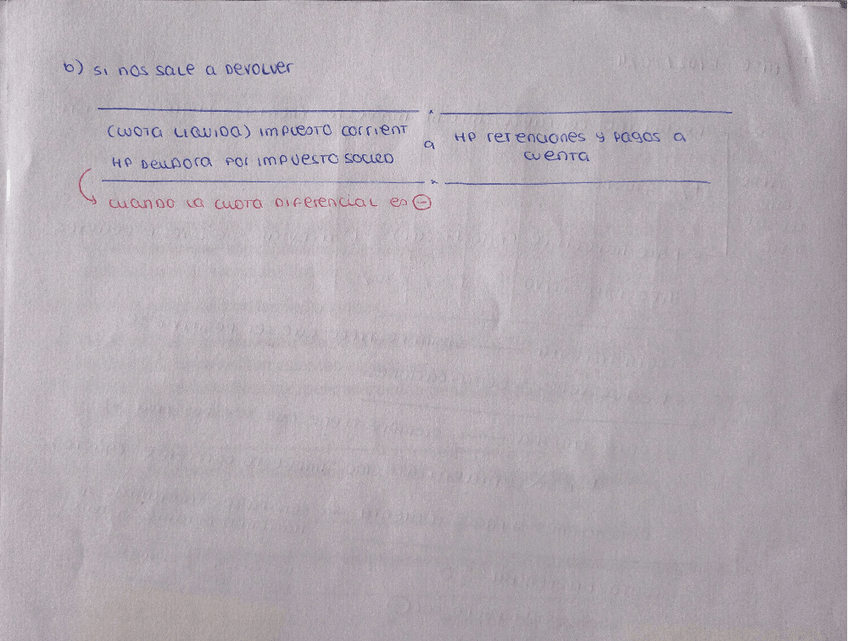 b) SI NOS SALE A DEVOLVER
(CUOTA LIQUIDA) IMPUESTO CORRIENT
HP DEUDORA POR IMPUESTO SOCIED
a
HP retenciones y pagos a
cuenta
CUANDO LA CUOTA DIFERENCIAL es ⊖